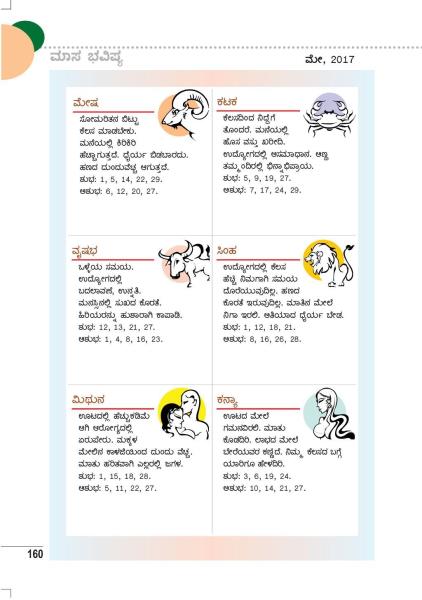 ಮಾಸ ಭವಿಷ್ಯ
ಮೇ, 2017
ಮೇಷ
ಸೋಮಾರಿತನ ಬಿಟ್ಟು
ಕೆಲಸ ಮಾಡಬೇಕು.
ಮನೆಯಲ್ಲಿ ಕಿರಿಕಿರಿ
ಹೆಚ್ಚಾಗುತ್ತದೆ. ಧೈರ್ಯ ಬಿಡಬಾರದು.
ಹಣದ ದುಂದುವೆಚ್ಚ ಆಗುತ್ತದೆ.
ಶುಭ: 1, 5, 14, 22, 29.
ಅಶುಭ: 6, 12, 20, 27.
ಕಟಕ
ಕೆಲಸದಿಂದ ನಿದ್ದೆಗೆ
ತೊಂದರೆ. ಮನೆಯಲ್ಲಿ
ಹೊಸ ವಸ್ತು ಖರೀದಿ.
ಉದ್ಯೋಗದಲ್ಲಿ ಅಸಮಾಧಾನ. ಅಣ್ಣ
ತಮ್ಮಂದಿರಲ್ಲಿ ಭಿನ್ನಾಭಿಪ್ರಾಯ.
ಶುಭ: 5, 9, 19, 27.
ಅಶುಭ: 7, 17, 24, 29.
ವೃಷಭ
ಒಳ್ಳೆಯ ಸಮಯ.
ಉದ್ಯೋಗದಲ್ಲಿ
ಬದಲಾವಣೆ, ಉನ್ನತಿ.
ಮನಸ್ಸಿನಲ್ಲಿ ಸುಖದ ಕೊರತೆ.
ಹಿರಿಯರನ್ನು ಹುಷಾರಾಗಿ ಕಾಪಾಡಿ.
ಶುಭ: 12, 13, 21, 27.
ಅಶುಭ: 1, 4, 8, 16, 23.
ಸಿಂಹ
ಉದ್ಯೋಗದಲ್ಲಿ ಕೆಲಸ
ಹೆಚ್ಚಿ ನಿಮಗಾಗಿ ಸಮಯ
ದೊರೆಯುವುದಿಲ್ಲ. ಹಣದ
ಕೊರತೆ ಇರುವುದಿಲ್ಲ. ಮಾತಿನ ಮೇಲೆ
ನಿಗಾ ಇರಲಿ. ಅತಿಯಾದ ಧೈರ್ಯ ಬೇಡ.
ಶುಭ: 1, 12, 18, 21.
ಅಶುಭ: 8, 16, 26, 28.
ಮಿಥುನ
ಊಟದಲ್ಲಿ ಹೆಚ್ಚುಕಡಿಮೆ
ಆಗಿ ಆರೋಗ್ಯದಲ್ಲಿ
ಏರುಪೇರು. ಮಕ್ಕಳ
ಮೇಲಿನ ಕಾಳಜಿಯಿಂದ ದುಂದು ವೆಚ್ಚ.
ಮಾತು ಹರಿತವಾಗಿ ಎಲ್ಲರಲ್ಲಿ ಜಗಳ.
ಶುಭ: 1, 15, 18, 28.
ಅಶುಭ: 5, 11, 22, 27.
ಕನ್ಯಾ
ಊಟದ ಮೇಲೆ
ಗಮನವಿರಲಿ. ಮಾತು
ಕೊಡದಿರಿ. ಲಾಭದ ಮೇಲೆ
ಬೇರೆಯವರ ಕಣ್ಣಿದೆ. ನಿಮ್ಮ ಕೆಲಸದ ಬಗ್ಗೆ
ಯಾರಿಗೂ ಹೇಳದಿರಿ.
ಶುಭ: 3, 6, 19, 24.
ಅಶುಭ: 10, 14, 21, 27.
160